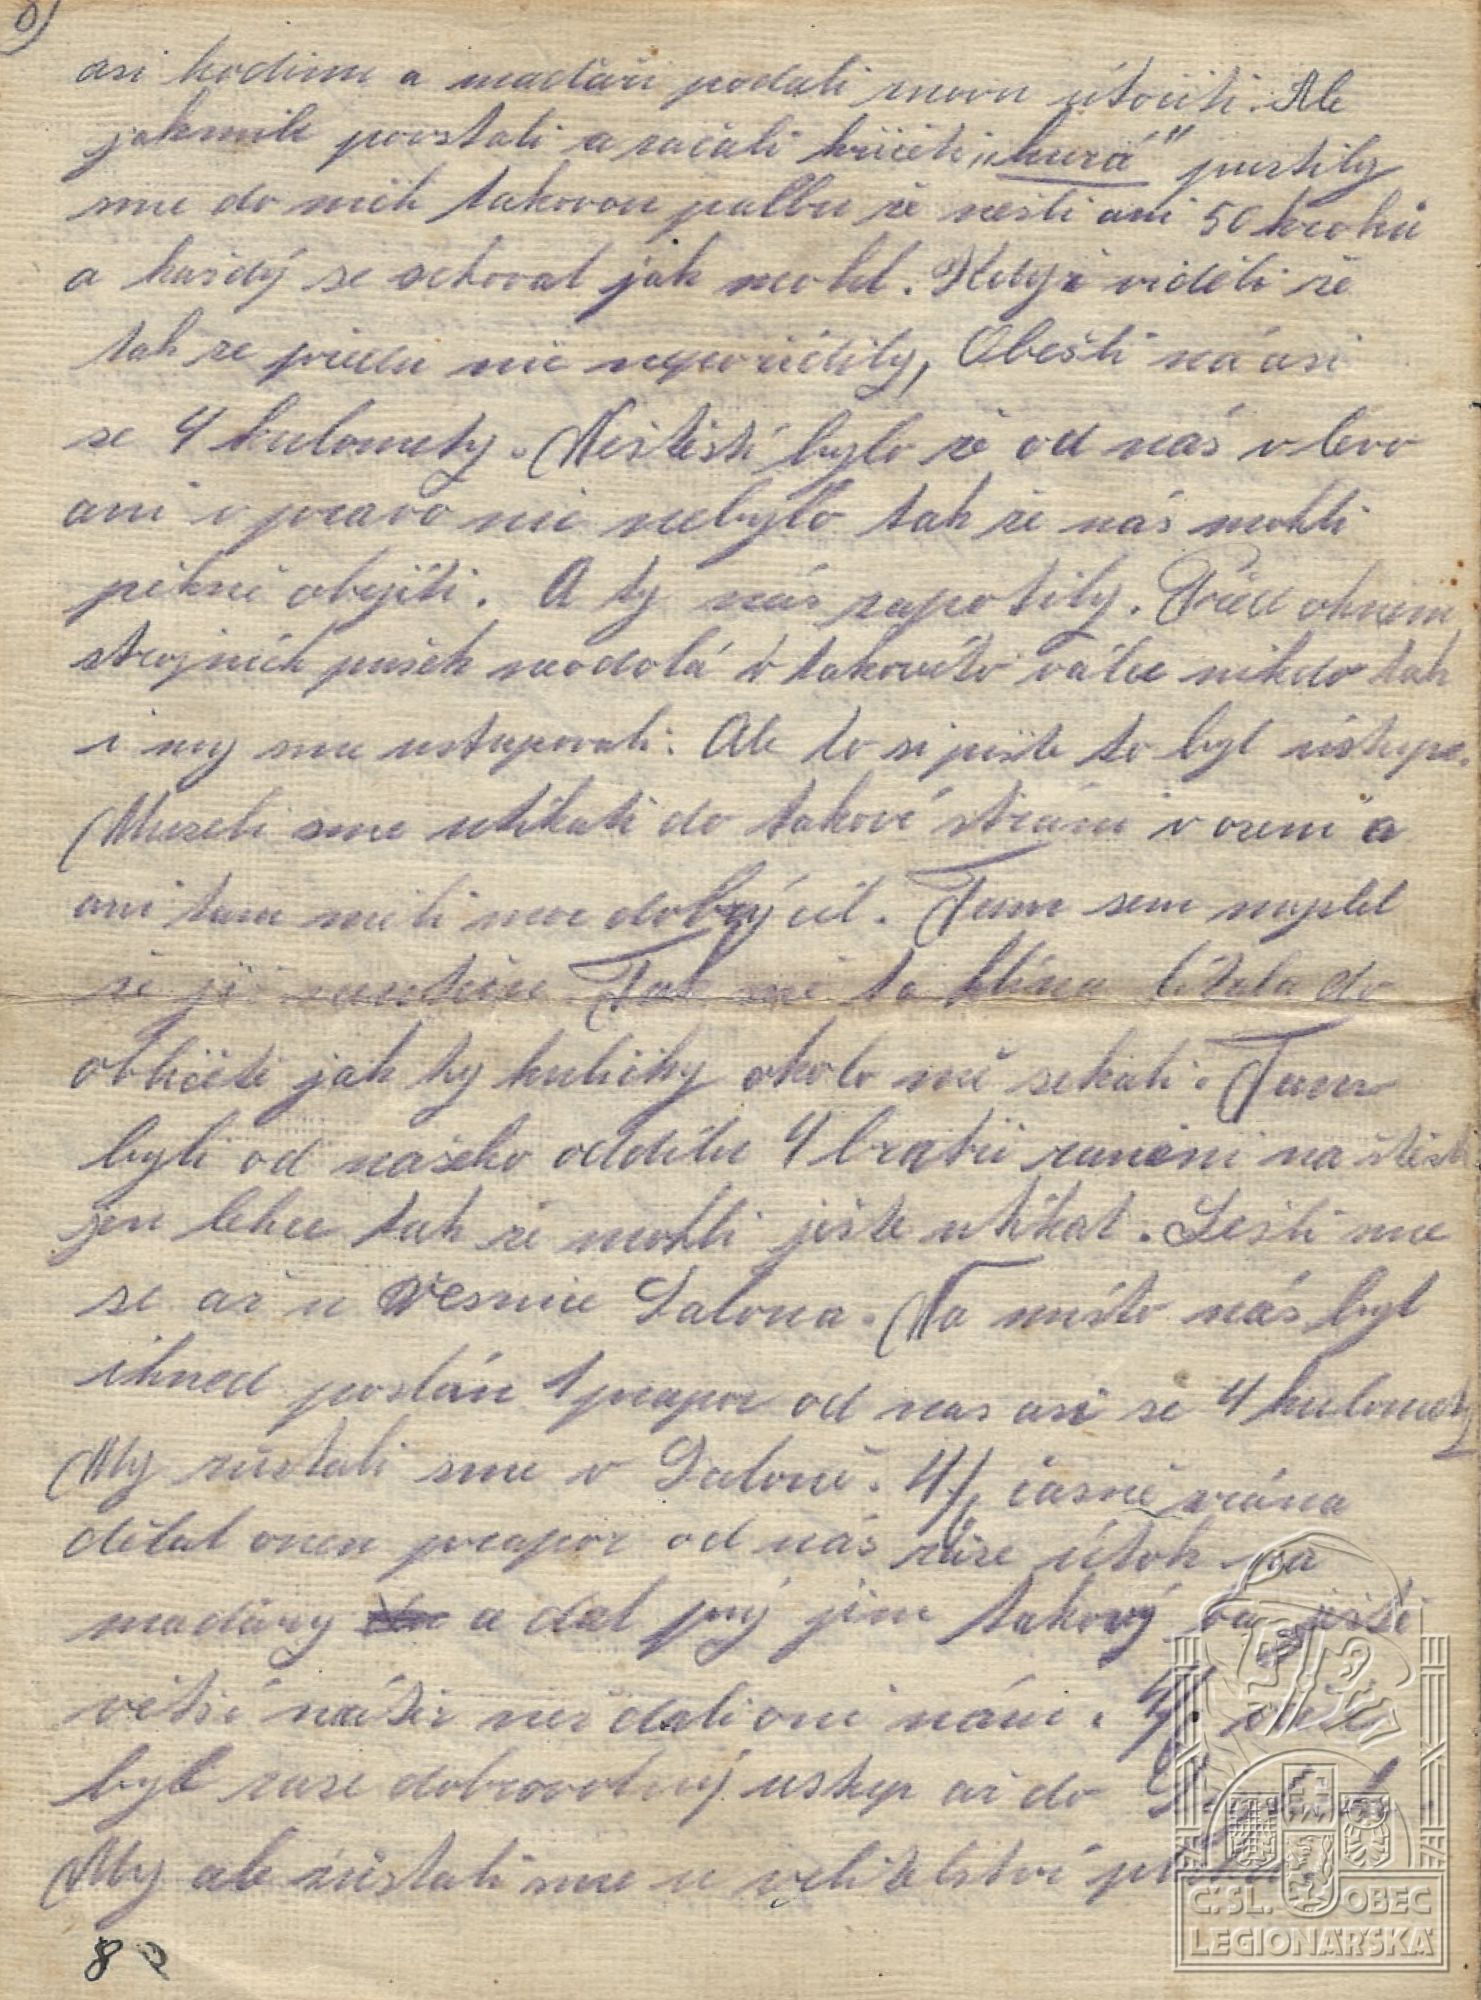 asi hodinu a maďaři počali znovu útočiti. Ale
jakmile povstali a začali křičeti „hurá" pustily
sme do nich takovou palbu že nešli ani 50 kroků
a každý se schoval jak mohl. Když viděli že
tak ze předu nic nepořídily, Obešli nás asi
se 4 kulomety. Neštěstí bylo že od nás v levo
ani v pravo nic nebylo tak že nás mohli
pěkně obejíti. A ty nás zapotily. Před ohněm
strojních pušek neodolá v takovéto válce nikdo tak
i my sme ustupovali. Ale to si piště to byl ústup.
Museli sme utíkati do takové stráni v osení a
ani tam měli moc dobrý cíl. Tam sem myslel
že již neuteču. Tak mě ta hlína lítala do
obličeje jak ty kuličky okolo mě sekali. Tam
byli od našeho oddílu 4 bratři raněni na štěstí
jen lehce tak že mohli ješte utíkat. Sešli sme
se až u vesnice Dalova. Na místo nás byl
ihned poslán 1 prapor od nas asi se 4 kulomety
My zústali sme v Daloně. 4/ časně z rána
dělal onen prapor od nás zase útok na
maďary a dal prý jim takový ješté
větší nátěr než dali oni nám. 4/.
byl zase dobrovolný ústup až do
My ale zústali sme u velitelství
8
Č. SL. OBEC
LEGIONÁŘSKÁ